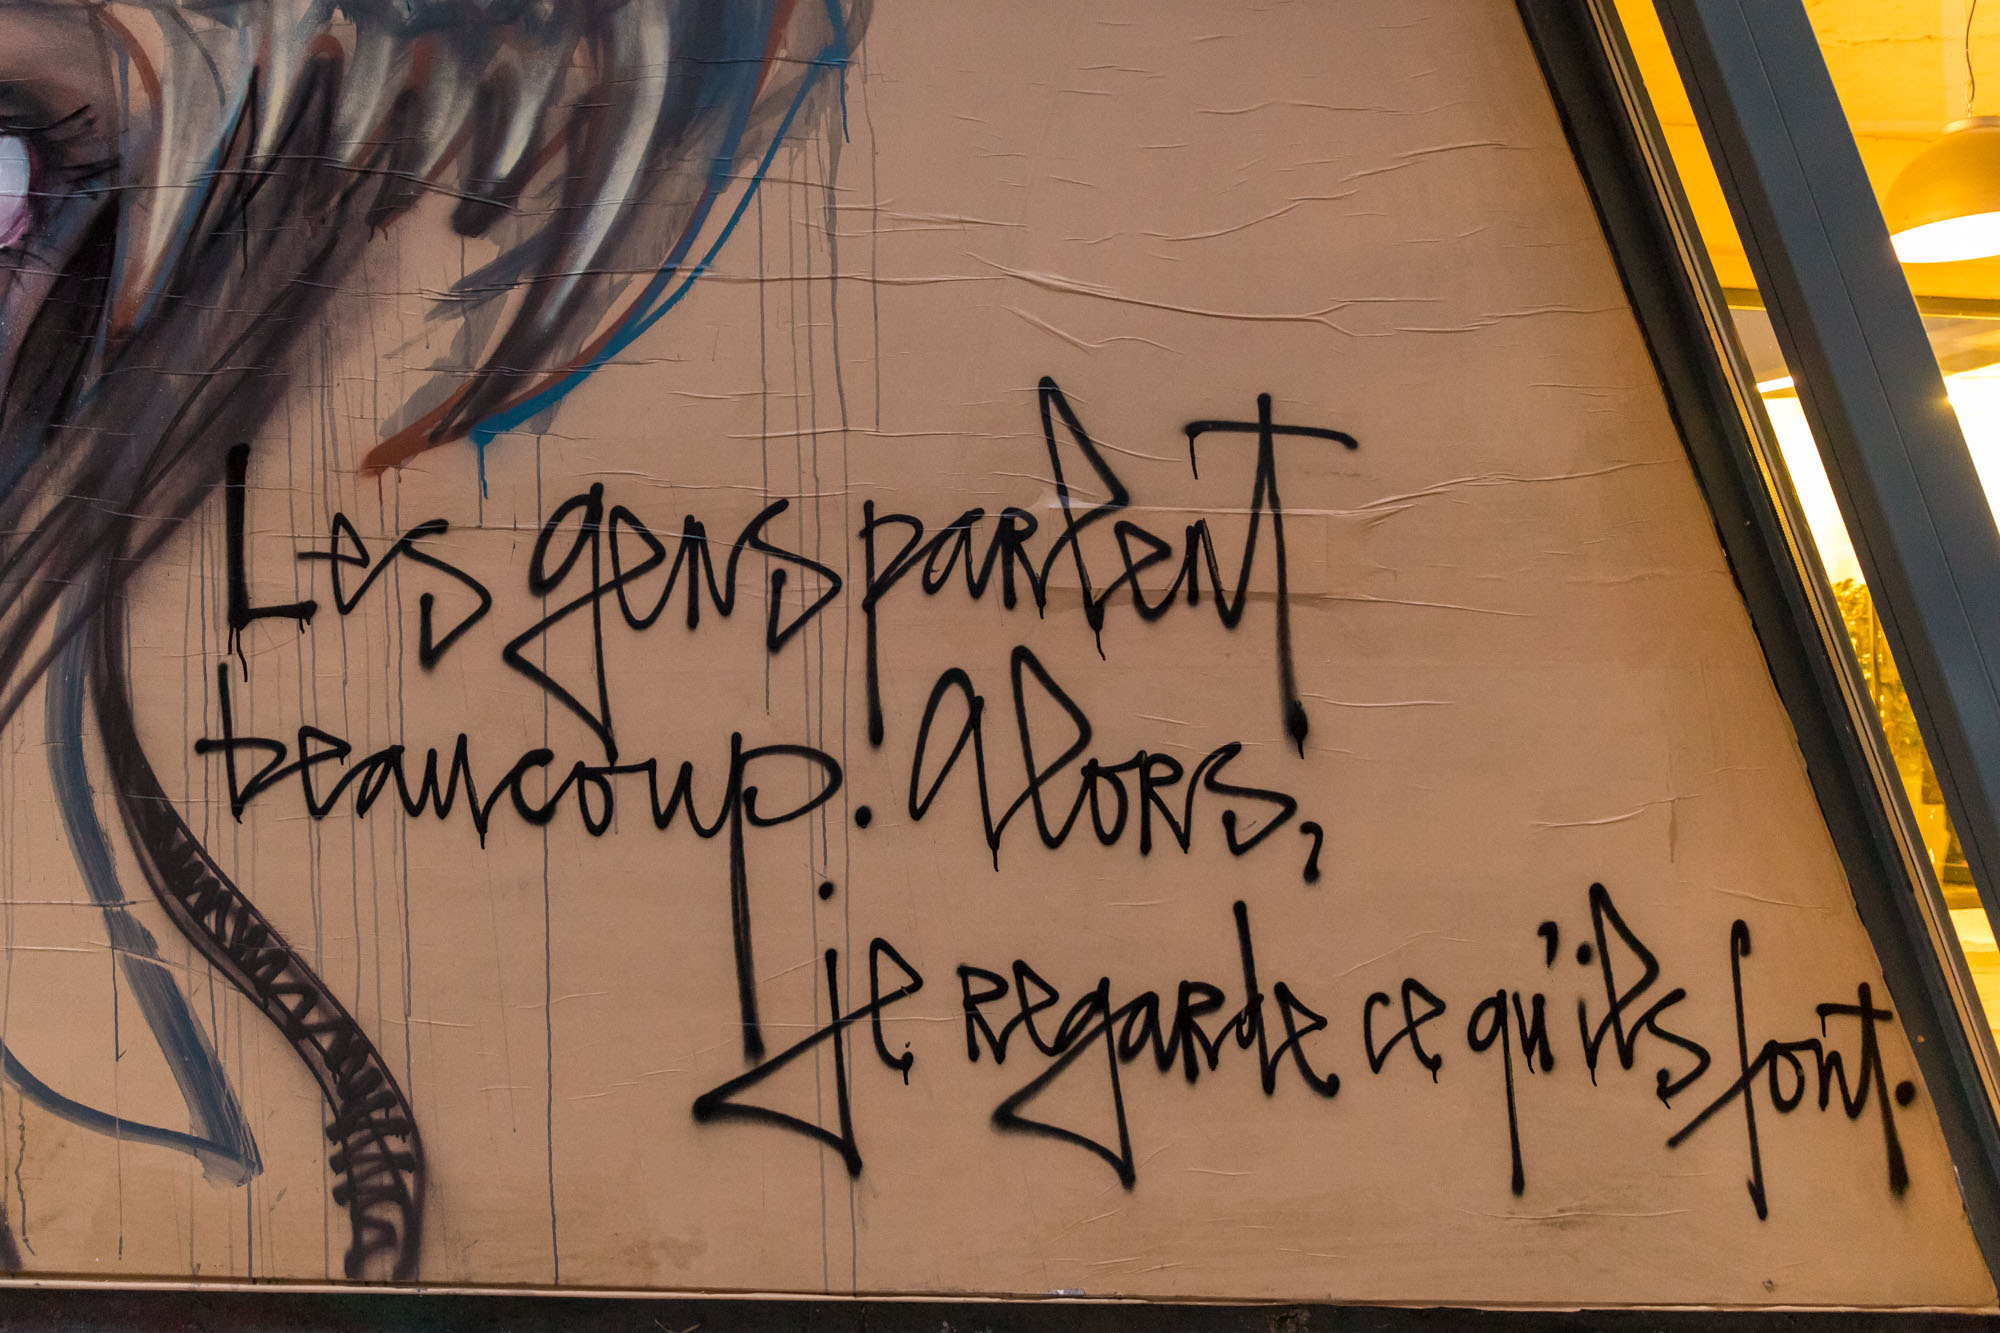 Les gens parlent
beaucoup. Alors,
je regarde ce qu'ils font.